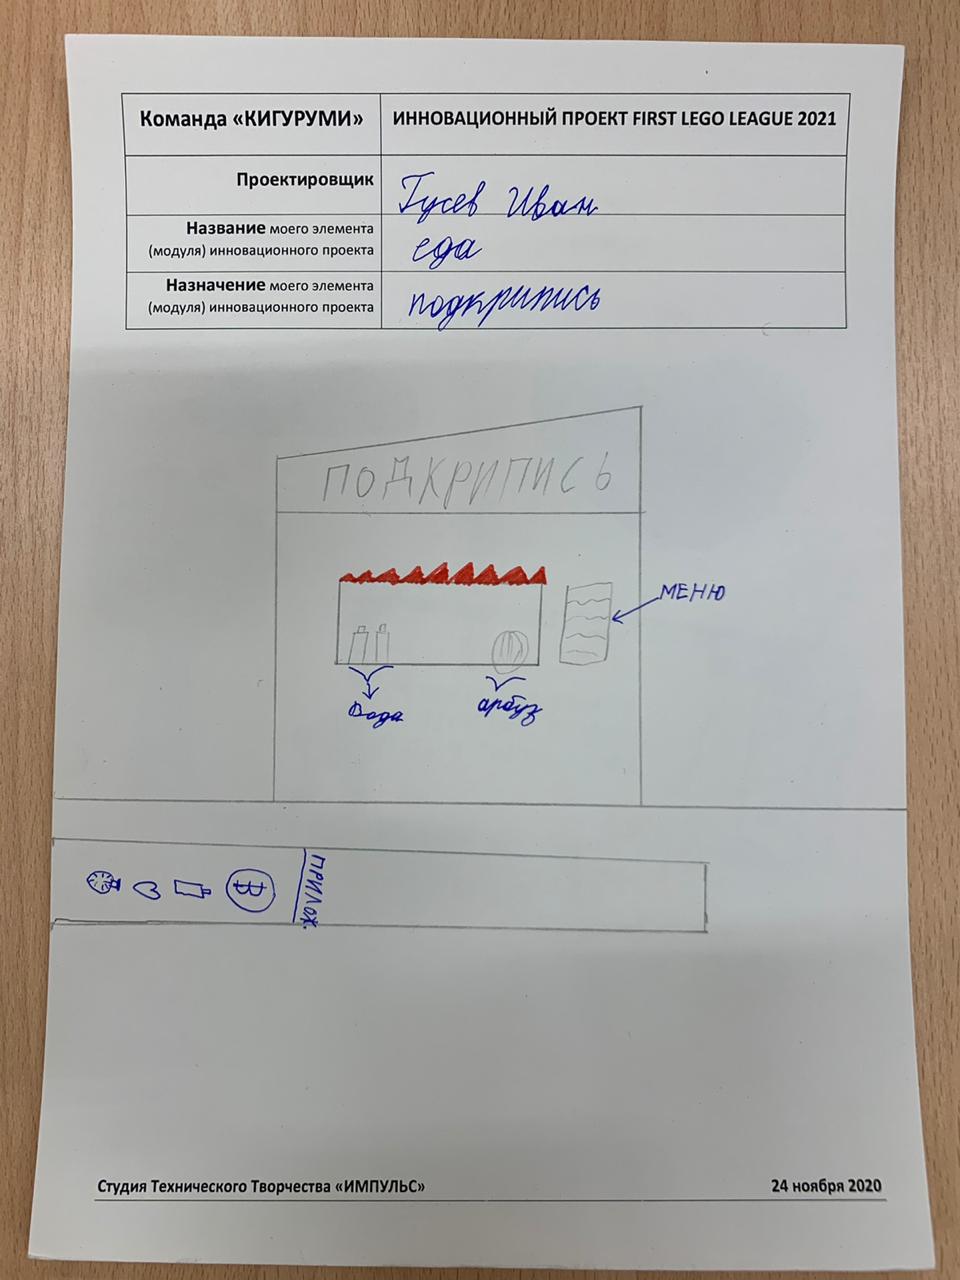 Команда «КИГУРУМИ»
ИННОВАЦИОННЫЙ ПРОЕКТ FIRST LEGO LEAGUE 2021
Проектировщик
Гусев Иван
Название моего элемента
(модуля) инновационного проекта
еда
Назначение моего элемента
(модуля) инновационного проекта
подкрипись
ПОДКРИПИСЬ
МЕНЮ
Вода
арбуз
ПРИЛОЖ.
В
Студия Технического Творчества «ИМПУЛЬС»
24 ноября 2020